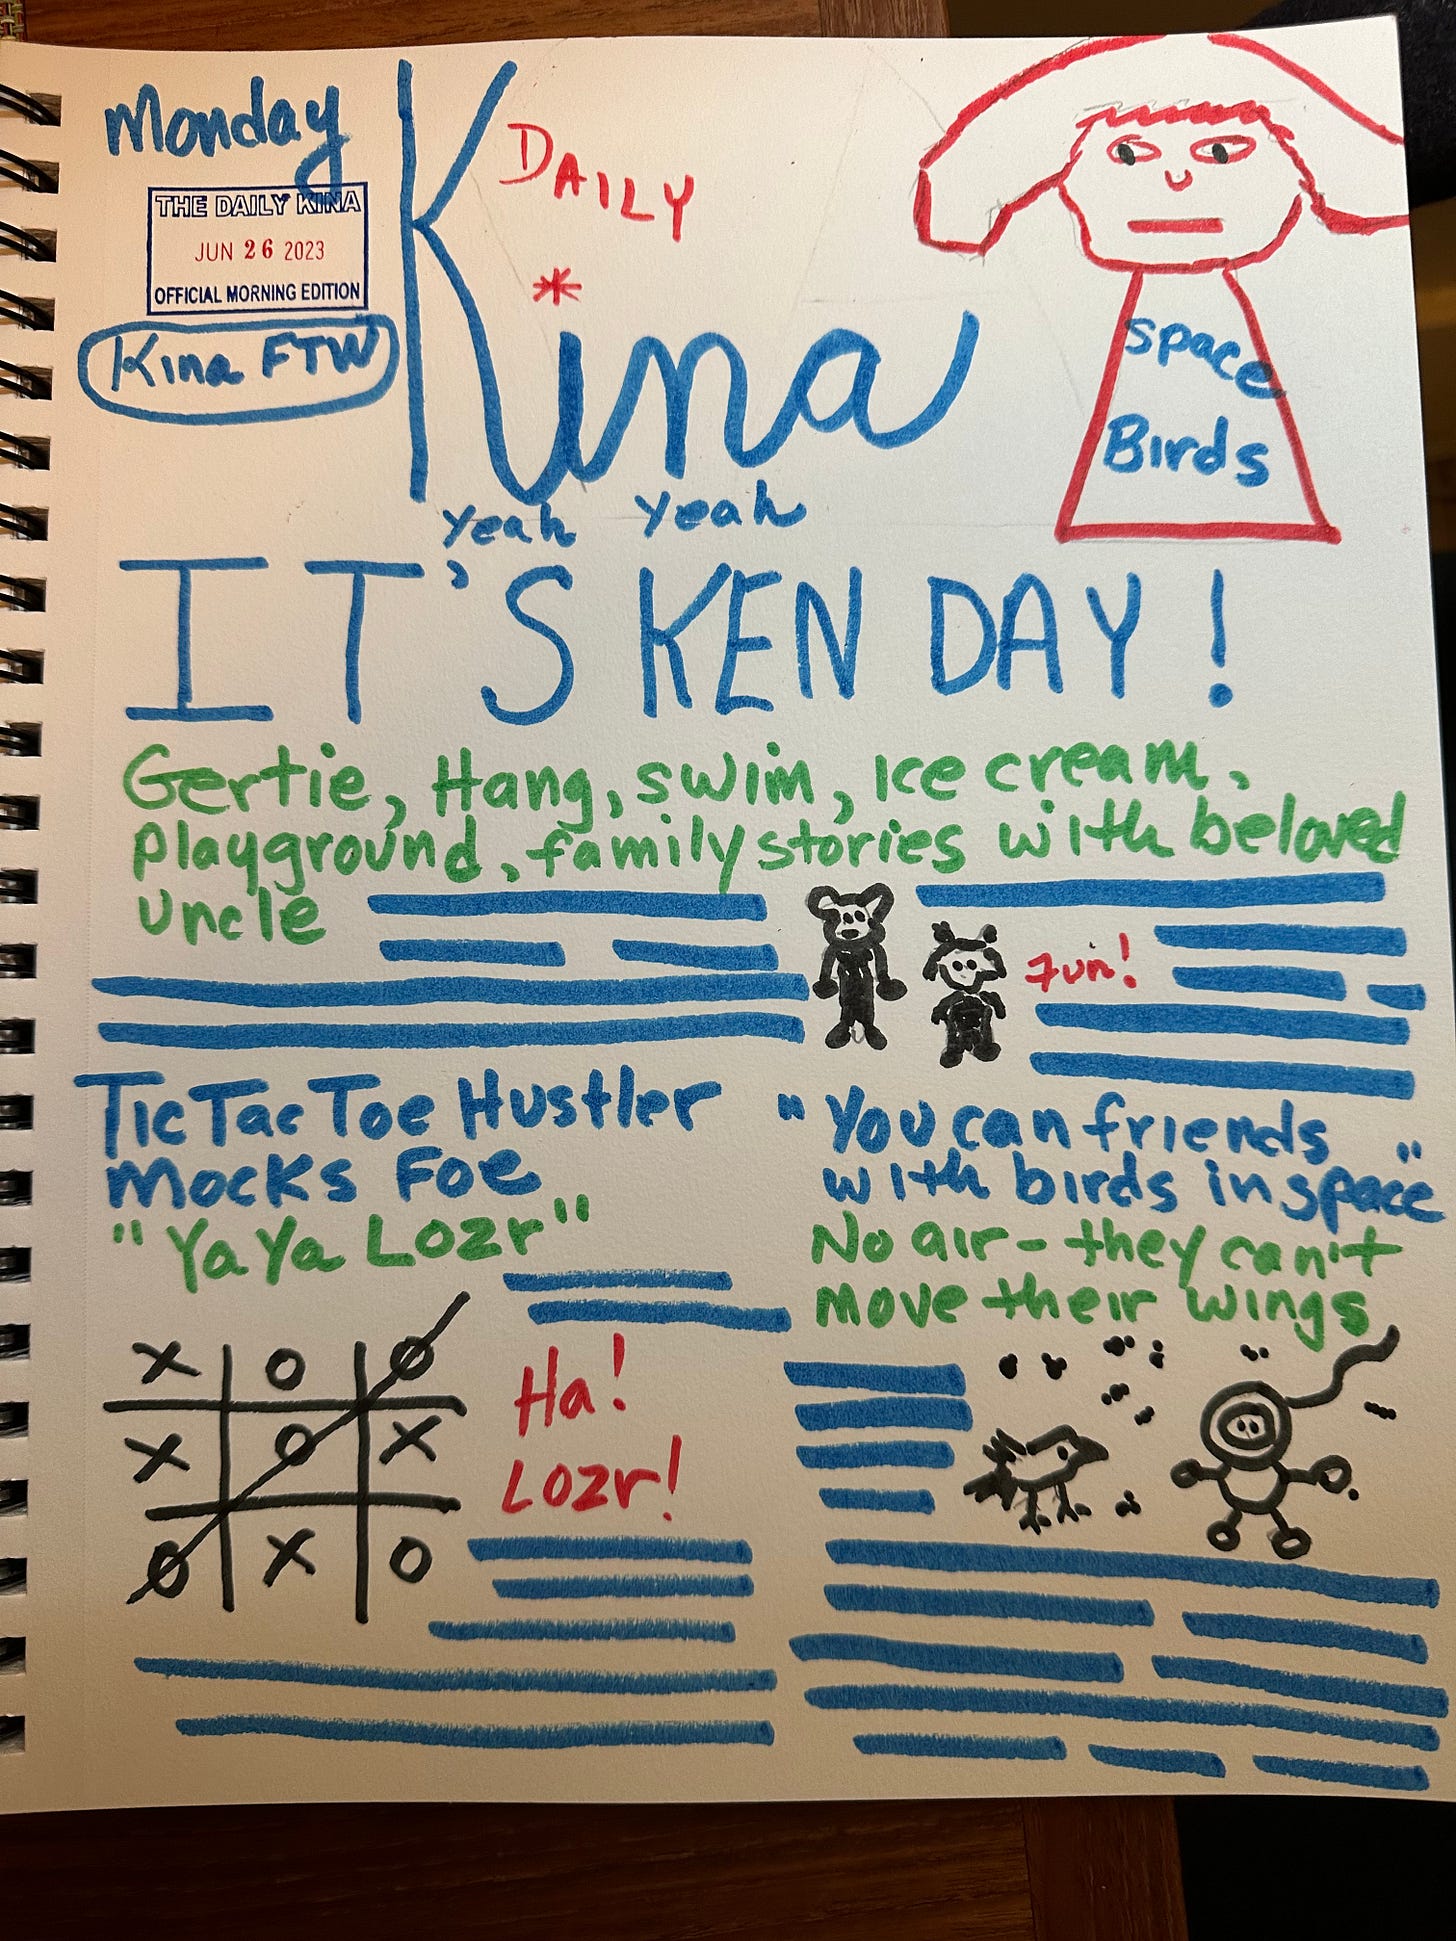 Monday
THE DAILY KINA
JUN 26 2023
OFFICIAL MORNING EDITION
Kina FTW
DAILY
Kina
yeah yeah
Space
Birds
IT'S KEN DAY!
Gertie, Hang, swim, Ice cream,
Playground, family stories with beloved
uncle
Fun!
Tic Tac Toe Hustler
Mocks Foe
"Ya Ya Lozr"
X O O
X O X
O X O
Ha!
Lozr!
"You can friends
with birds in space"
No air - they can't
move their wings